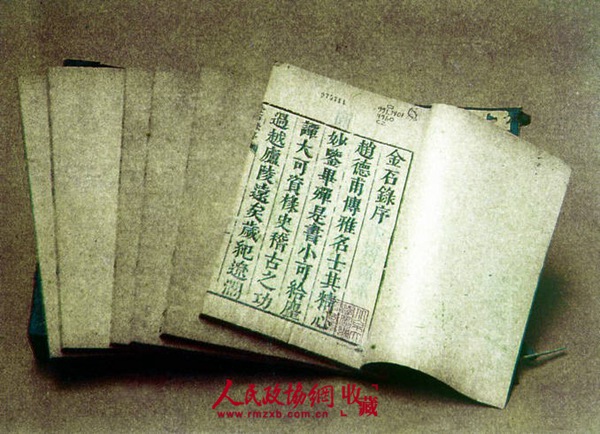 金石錄序
趙德甫博雅名士其精心
妙鑒畢殫是書小可給麈
譚大可資史稽古之功
過越廬陵遠矣歲紀遼濶
人民政協網 收藏
www.rmzxb.com.cn